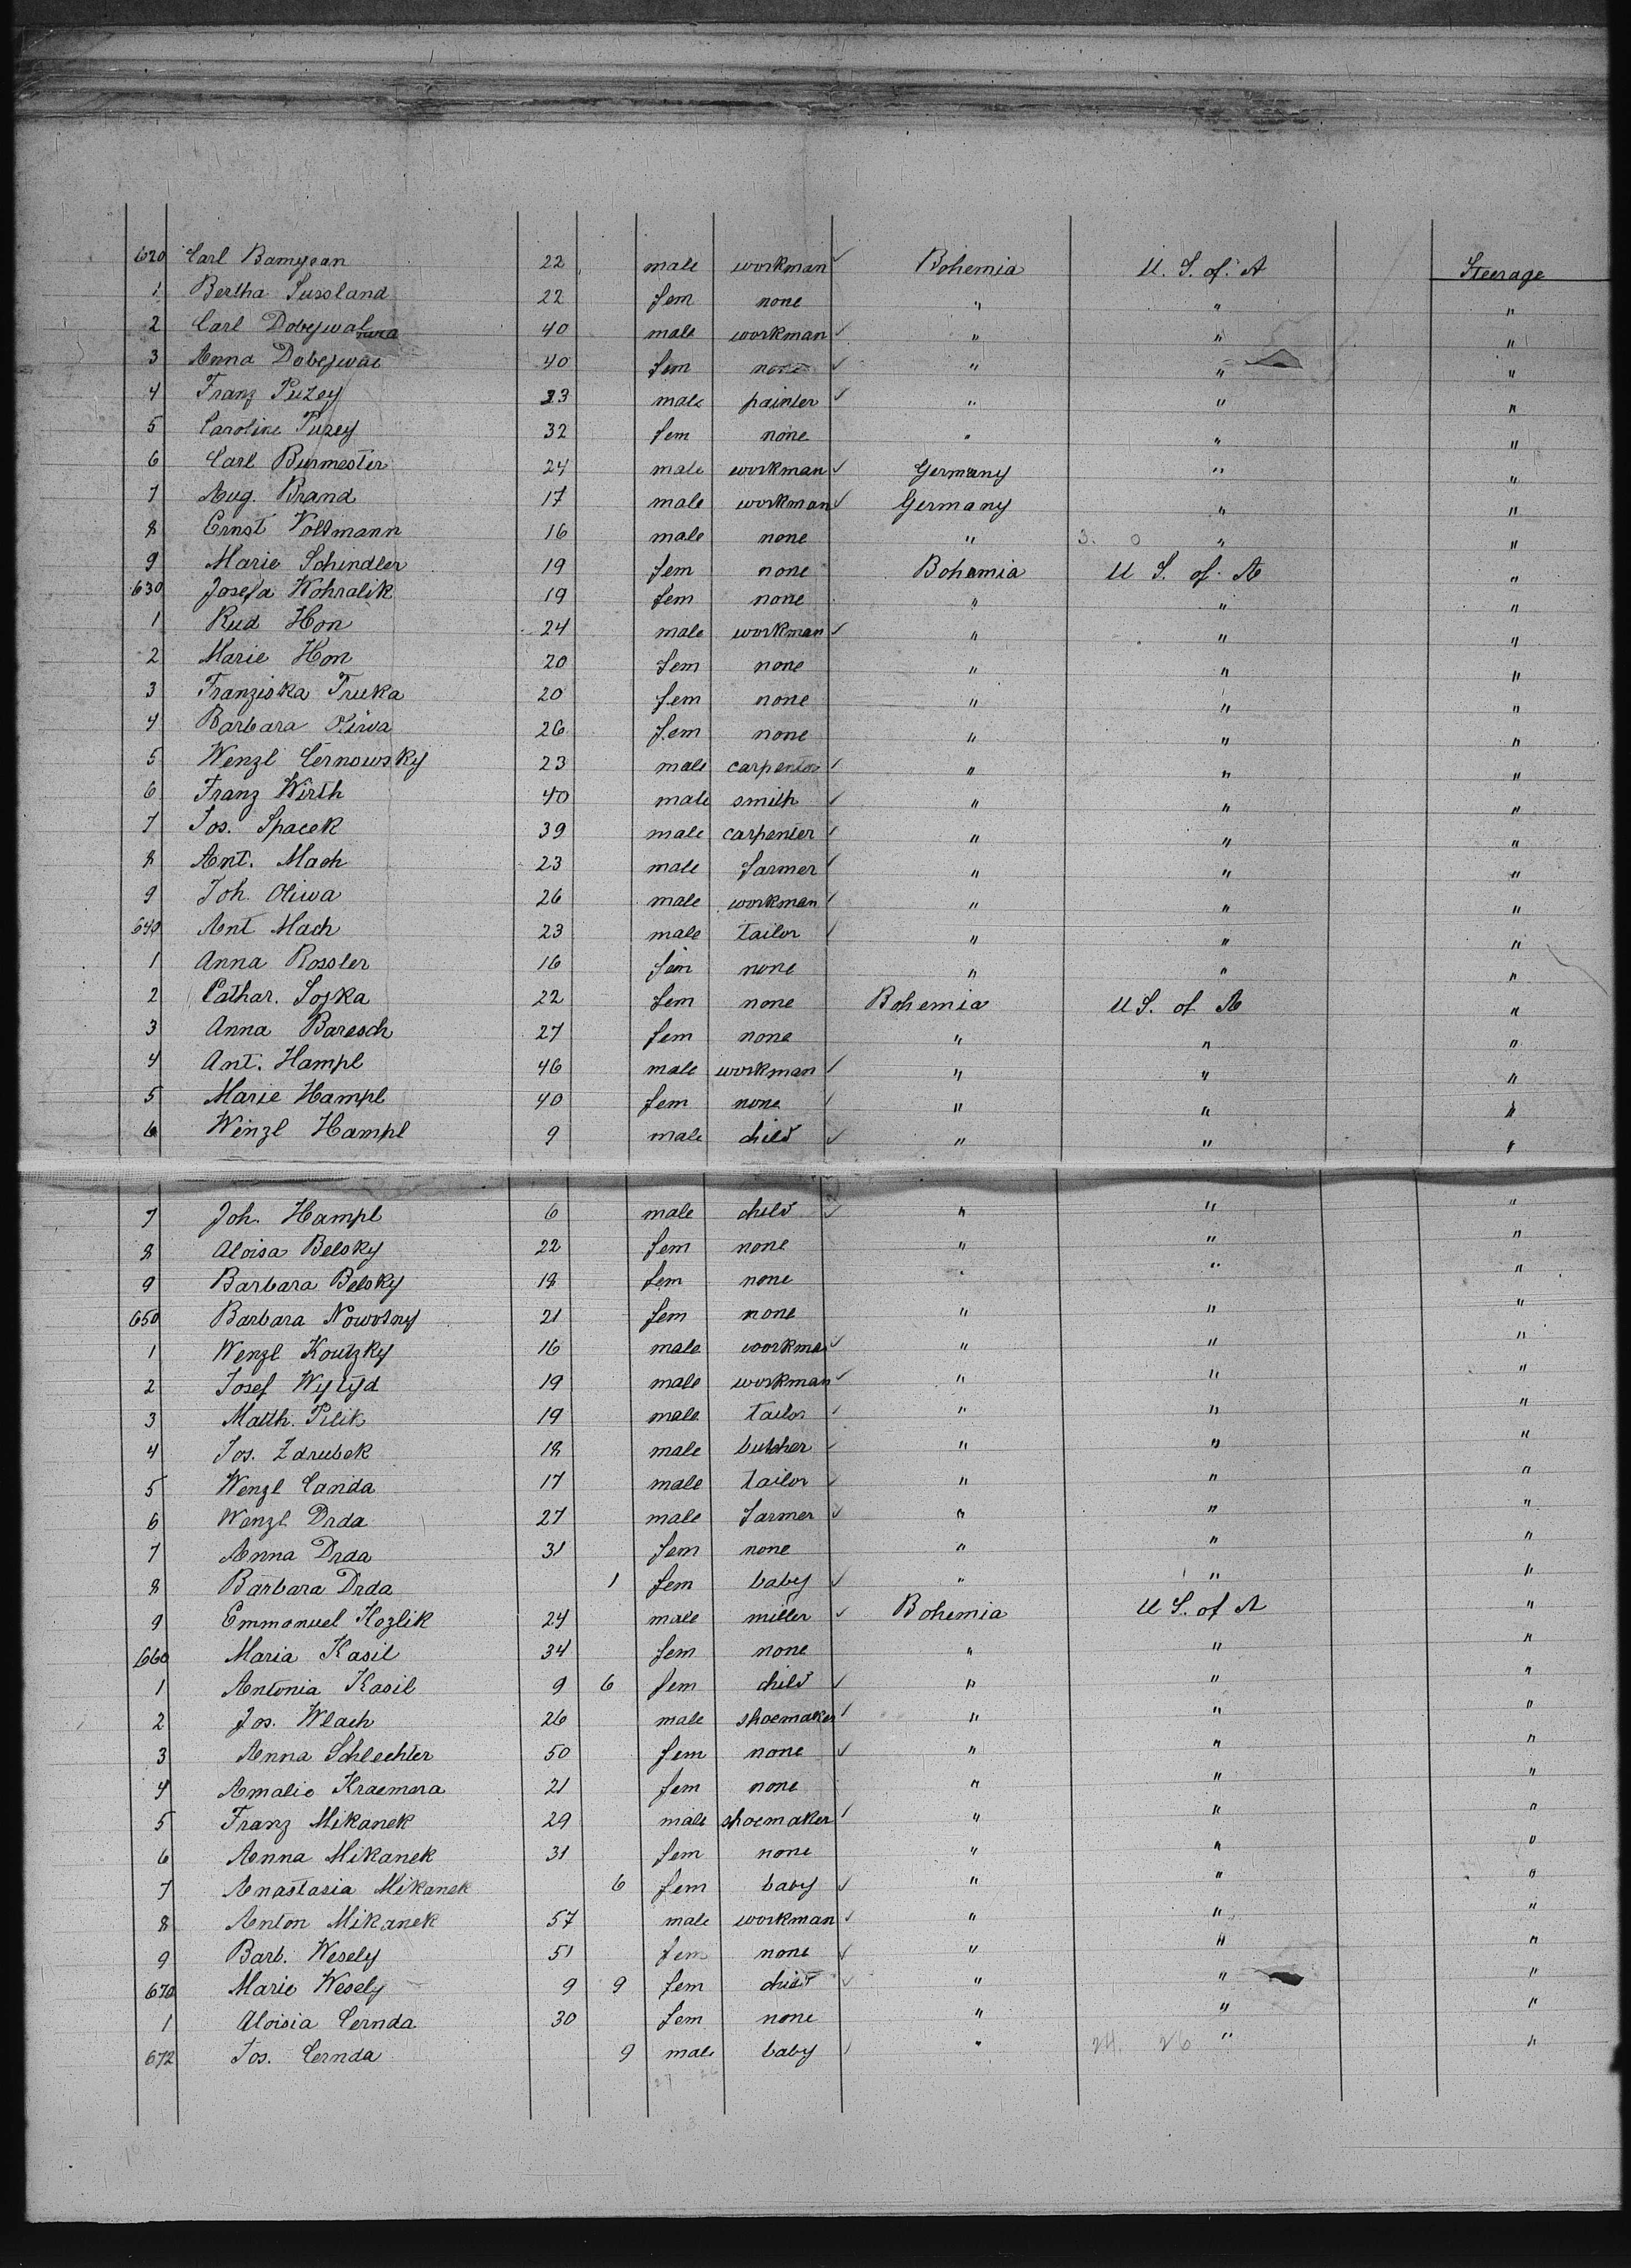 620 Carl Bamyean 22 male workman ✓ Bohemia U. S. of. A Steerage
1 Bertha Sussland 22 fem none " " "
2 Carl Dobeywal 40 male workman ✓ " " "
3 Anna Dobeywal 40 fem none ✓ " " "
4 Franz Puzey 33 male painter ✓ " " "
5 Caroline Puzey 32 fem none " " "
6 Carl Burmester 24 male workman ✓ Germany " "
7 Aug. Brand 17 male workman ✓ Germany " "
8 Ernst Voltmann 16 male none " 3. 0 " "
9 Marie Schindler 19 fem none Bohemia U S. of. A "
630 Josefa Wohralik 19 fem none " " "
1 Rud Hon 24 male workman ✓ " " "
2 Marie Hon 20 fem none " " "
3 Franziska Truka 20 fem none " " "
4 Barbara Oliwa 26 fem none " " "
5 Wenzl Cernowsky 23 male carpenter ✓ " " "
6 Franz Wirth 40 male smith ✓ " " "
7 Jos. Spacek 39 male carpenter ✓ " " "
8 Ant. Mach 23 male farmer ✓ " " "
9 Joh. Oliwa 26 male workman ✓ " " "
640 Ant Mach 23 male tailor ✓ " " "
1 Anna Rossler 16 fem none " " "
2 Cathar. Sojka 22 fem none Bohemia U S. of A "
3 Anna Baresch 27 fem none " " "
4 Ant. Hampl 46 male workman ✓ " " "
5 Marie Hampl 40 fem none ✓ " " "
6 Wenzl Hampl 9 male child ✓ " " "
7 Joh. Hampl 6 male child ✓ " " "
8 Aloisa Belsky 22 fem none " " "
9 Barbara Belsky 18 fem none " " "
650 Barbara Nowotny 21 fem none " " "
1 Wenzl Koutzky 16 male workman ✓ " " "
2 Josef Wytyd 19 male workman ✓ " " "
3 Matth. Pilik 19 male tailor ✓ " " "
4 Jos. Zdrubek 18 male butcher ✓ " " "
5 Wenzl Canda 17 male tailor ✓ " " "
6 Wenzl Drda 27 male farmer ✓ " " "
7 Anna Drda 31 fem none " " "
8 Barbara Drda 1 fem baby ✓ " " "
9 Emmanuel Kozlik 24 male miller ✓ Bohemia U S. of A "
660 Maria Kasil 34 fem none " " "
1 Antonia Kasil 9 6 fem child ✓ " " "
2 Jos. Wlach 26 male shoemaker ✓ " " "
3 Anna Schlechter 50 fem none ✓ " " "
4 Amalie Kraemera 21 fem none " " "
5 Franz Mikanek 29 male shoemaker ✓ " " "
6 Anna Mikanek 31 fem none " " "
7 Anastasia Mikanek 6 fem baby ✓ " " "
8 Anton Mikanek 57 male workman ✓ " " "
9 Barb. Wesely 51 fem none ✓ " " "
670 Marie Wesely 9 9 fem child ✓ " " "
1 Aloisia Cernda 30 fem none " " "
672 Jos. Cernda 9 male baby ✓ " 24. 26 " "